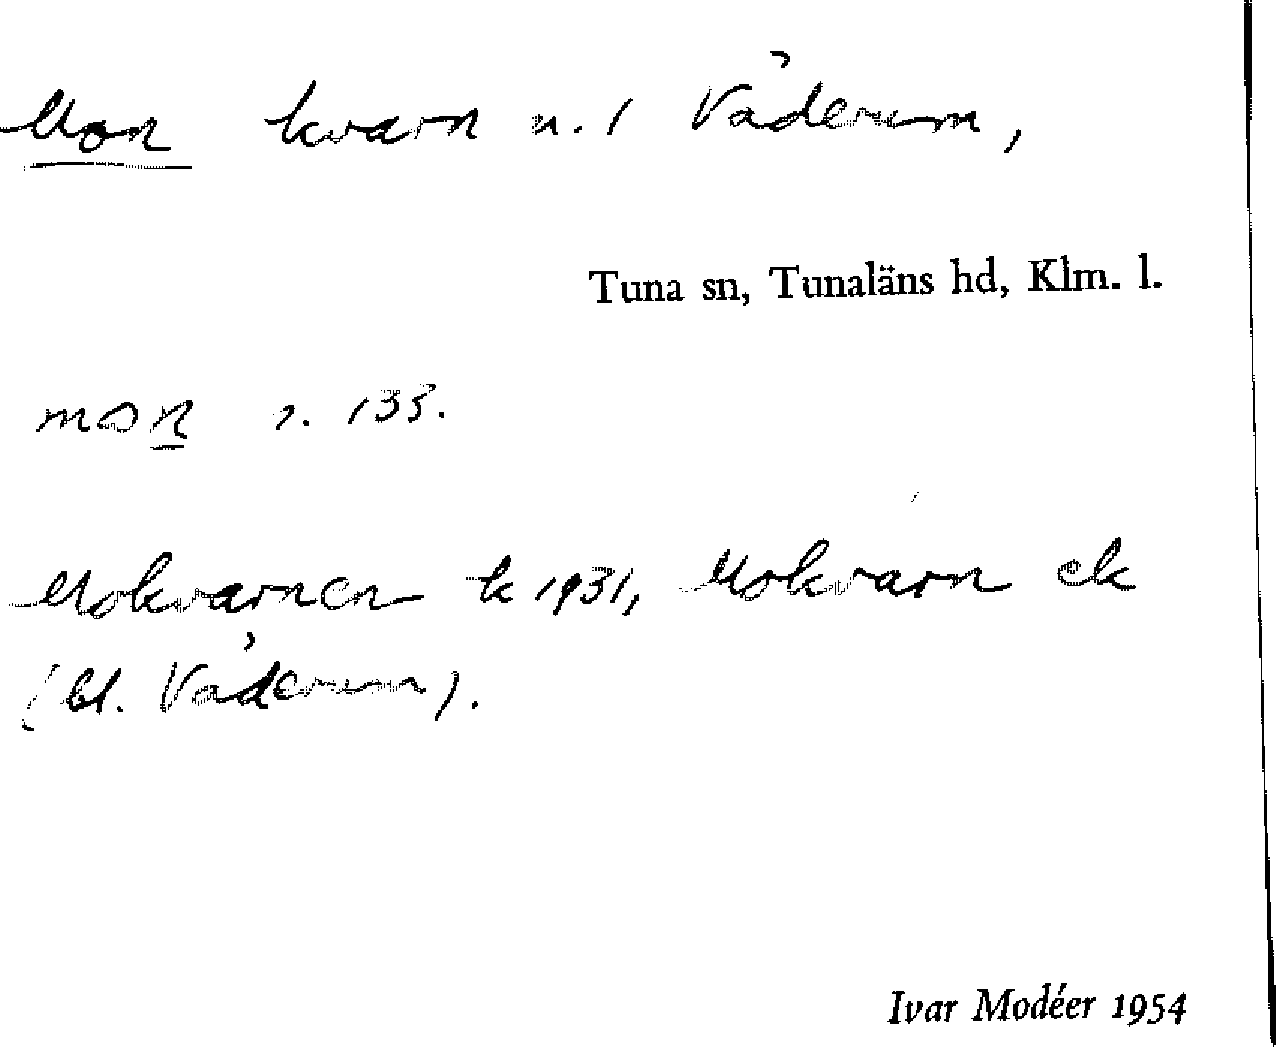 Mon kvarn u. / Våderum,
Tuna sn, Tunaläns hd, Klm. l.
mon s. 133.
Mokvarnen k 1931, Mokvarn ek
(bl. Våderum).
Ivar Modéer 1954